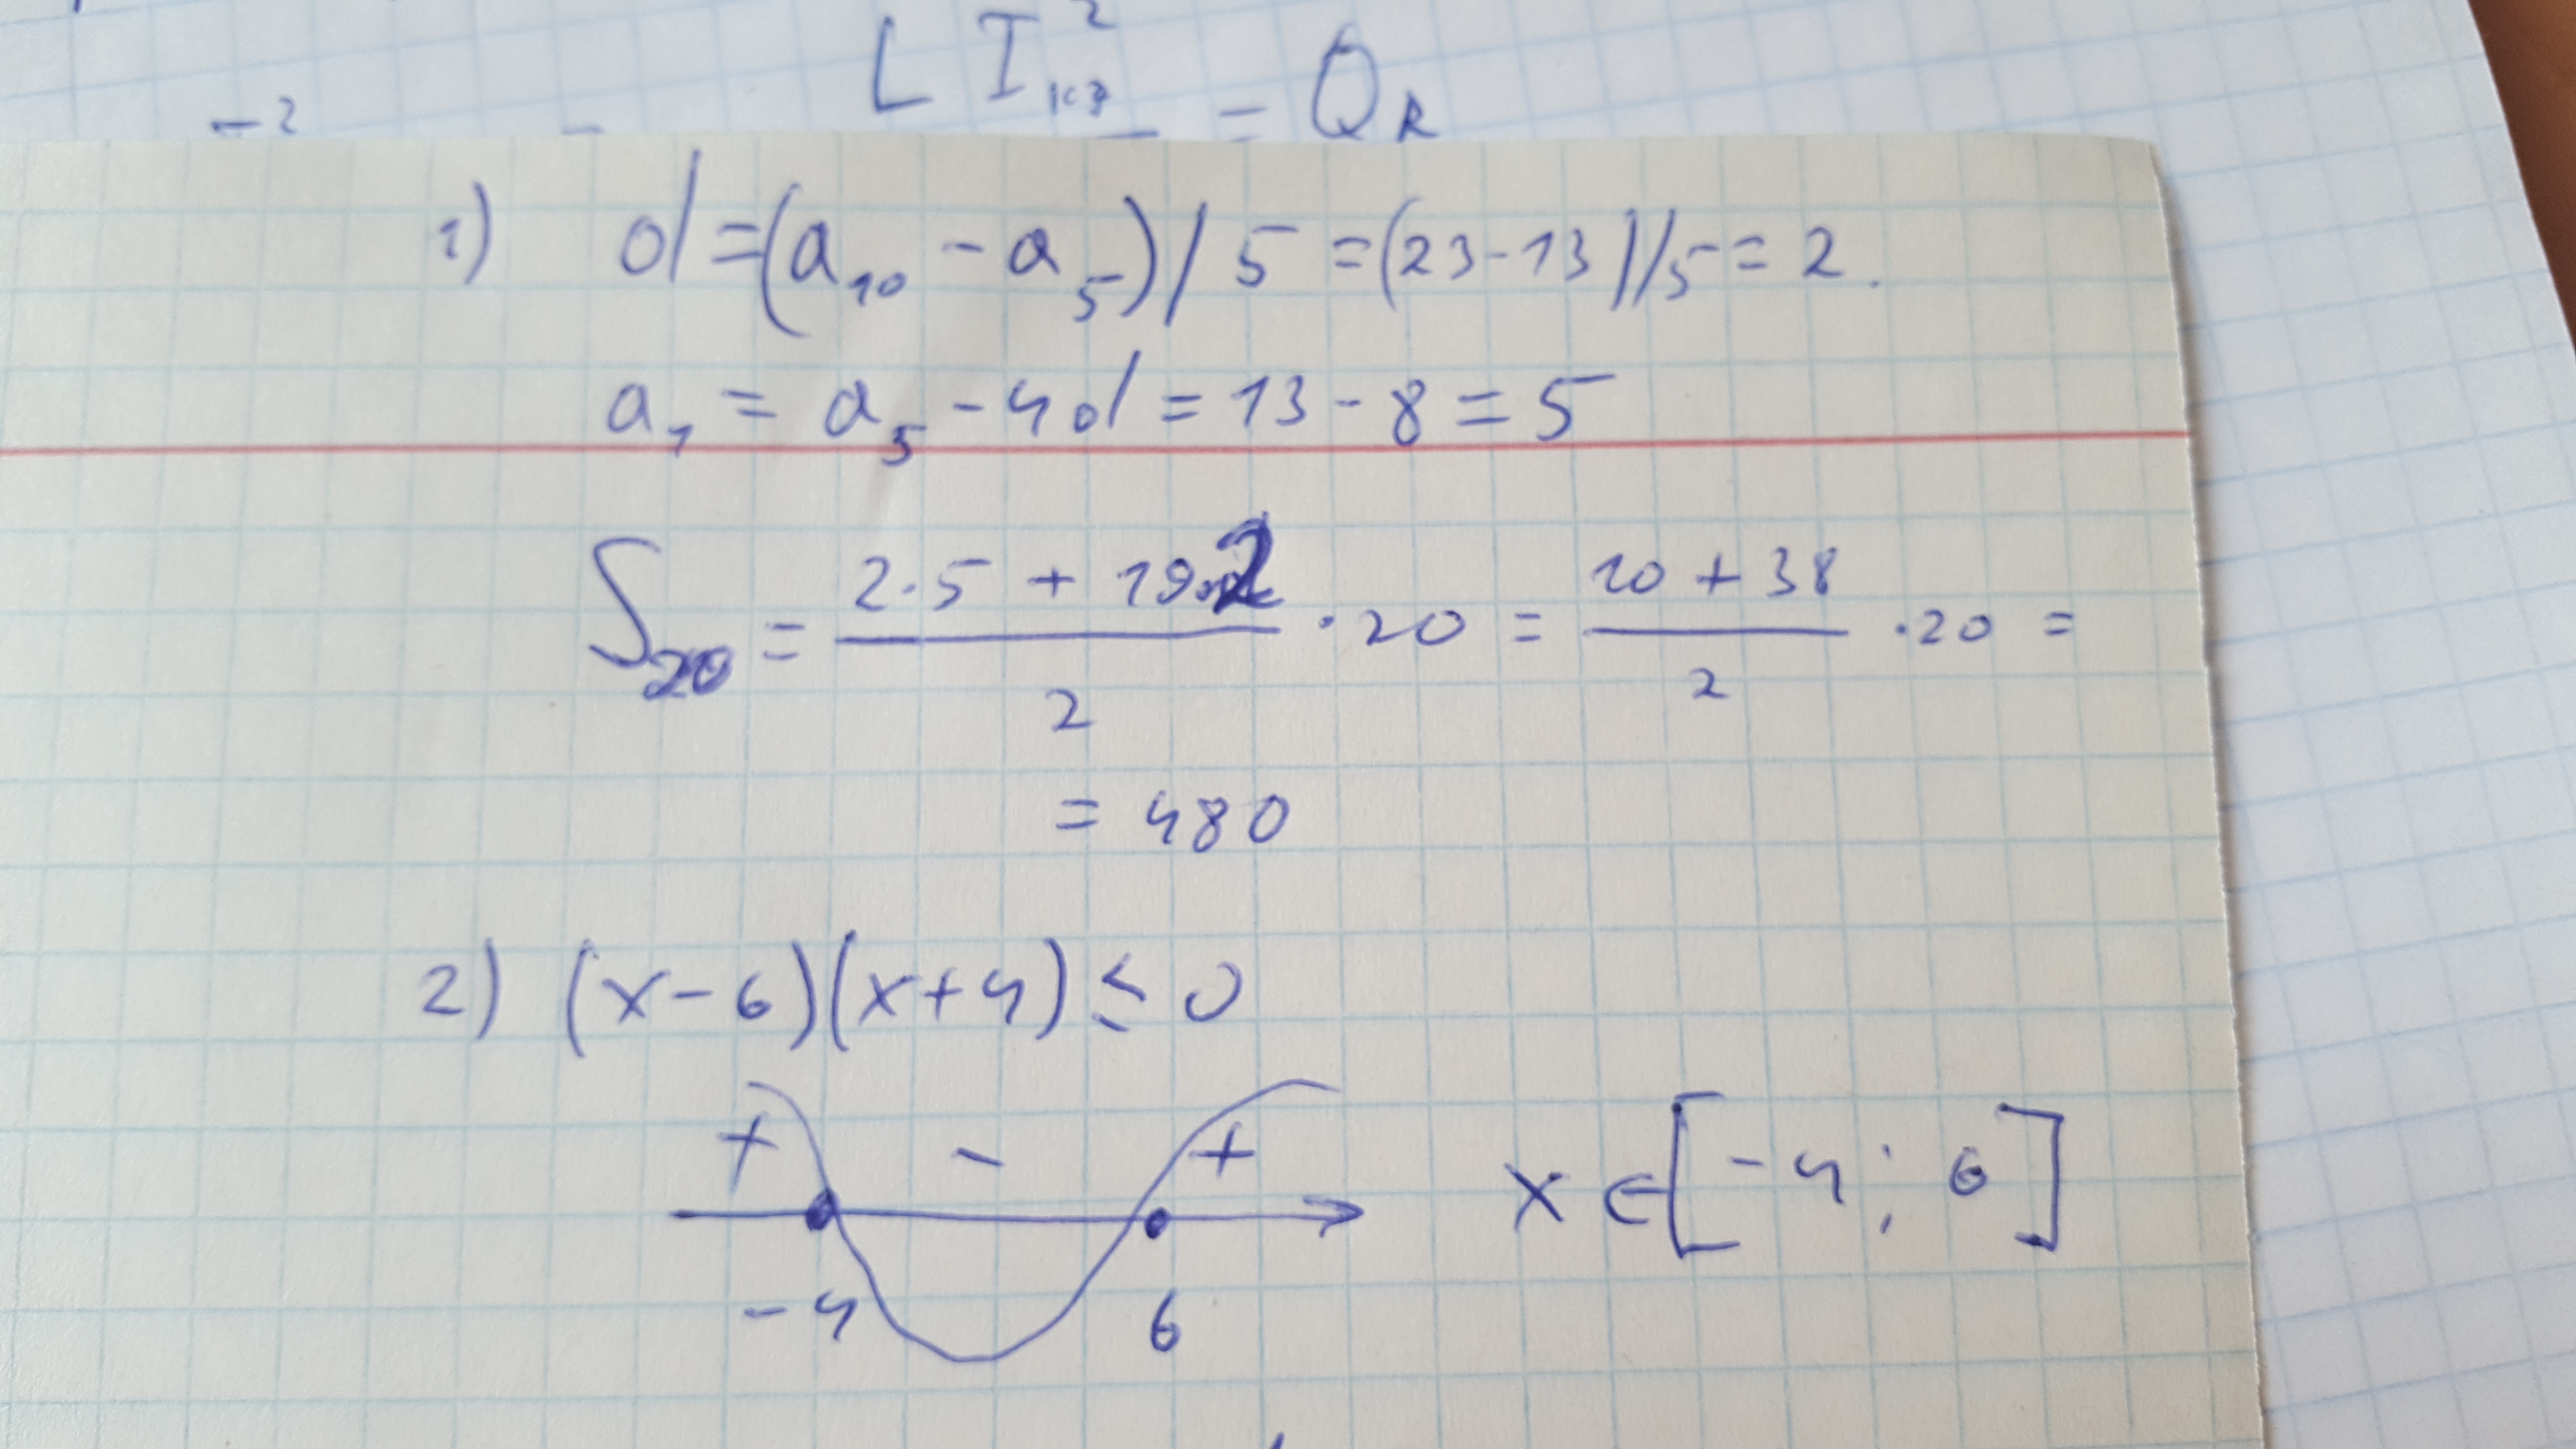 L I кз ²
— = Q R
1) d = (a₁₀ - a₅) / 5 = (23-13)/5 = 2.
a₁ = a₅ - 4d = 13 - 8 = 5
S₂₀ = (2·5 + 19·2)/2 · 20 = (10 + 38)/2 · 20 =
= 480
2) (x-6)(x+4) ≤ 0
+ - +
-4 6 x ∈ [-4; 6]